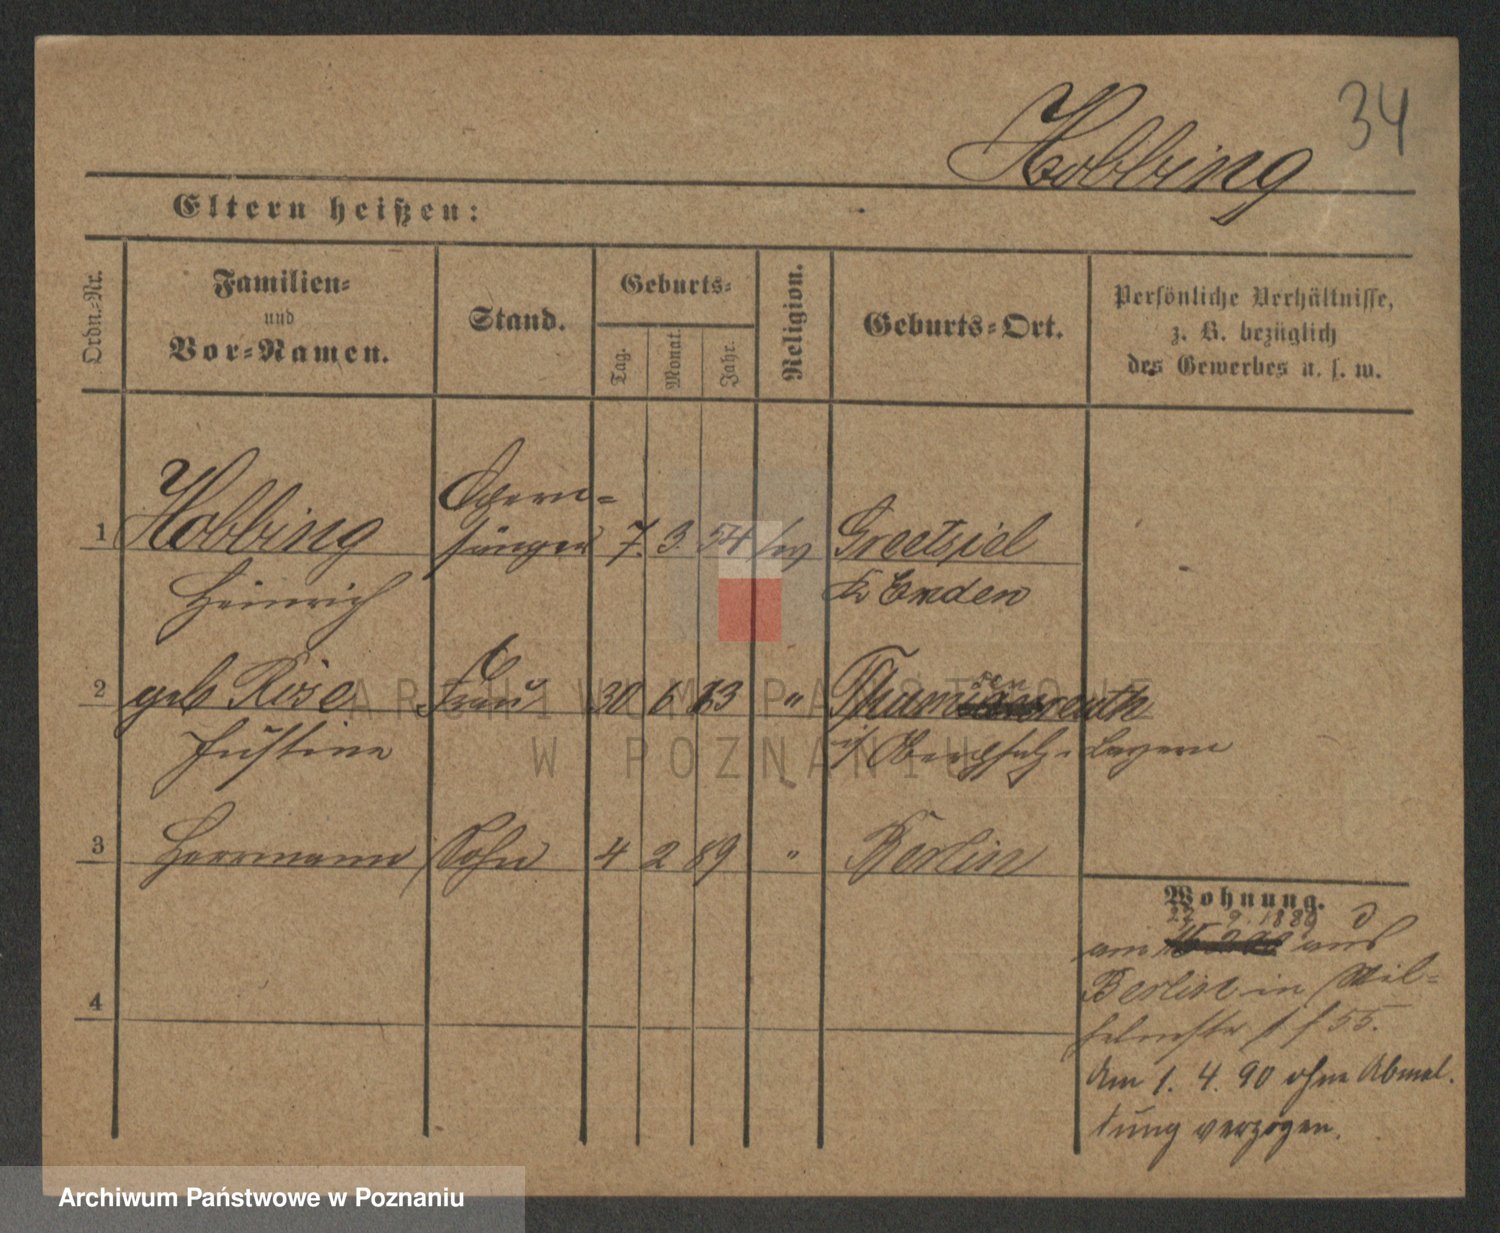 34
Hobbing
Eltern heißen:
Ordn.-Nr.
Familien-
und
Vor-Namen.
Stand.
Geburts-
Tag.
Monat.
Jahr.
Religion.
Geburts-Ort.
Persönliche Verhältnisse,
z. B. bezüglich
des Gewerbes u. s. w.
1 Hobbing Opern- 7. 3. 54 ev Greetsiel
Heinrich sänger Kr Emden
2 geb Rose Frau 30 6 63 " 
Justine Oberpfalz-Bayern
3 Herrmann Sohn 4 2 89 " Berlin
4
Wohnung.
22. 9. 1889
am aus
Berlin in Wil-
helmstr 55.
Am 1. 4. 90 ohne Abmel.
dung verzogen.
ARCHIWUM PAŃSTWOWE
W POZNANIU
Archiwum Państwowe w Poznaniu